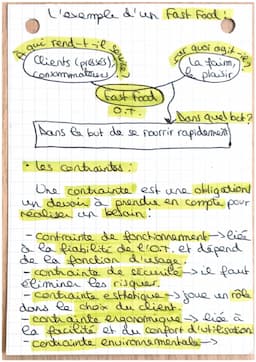 L'exemple d'un Fast Food :
A qui rend-t-il service?
sur quoi agit-il?
Clients (pressés)
consommateurs
la faim,
le plaisir
Fast Food
O.T.
Dans quel but?
Dans le but de se nourrir rapidement
• les contraintes :
Une contrainte est une obligation
un devoir à prendre en compte pour
réaliser un besoin :
- contrainte de fonctionnement → liée
à la fiabilité de l'O.T. et dépend
de la fonction d'usage.
- contrainte de sécurité → il faut
éliminer les risques.
- contrainte esthétique → joue un rôle
dans le choix du client.
- contrainte ergonomique → liée à
la facilité et du confort d'utilisation
- contrainte environnementale →